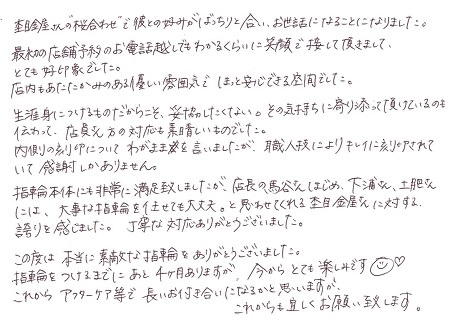 杢目金屋さんの"桜合わせ"で彼との好みがばっちりと合い、お世話になることになりました。
最初の店舗予約のお電話越しでもわかるくらいに笑顔で接して頂きまして、
とても好印象でした。
店内もあたたかみのある優しい雰囲気で ほっと安心できる空間でした。
生涯身につけるものだからこそ、妥協したくない。その気持ちに寄り添って頂けているのも
伝わって、店員さん方の対応も素晴しいものでした。
内側の刻印について わがままを言いましたが、職人技によりキレイに刻印されて
いて感謝しかありません。
指輪本体にも非常に満足致しましたが、店長の馬谷さんはじめ、下浦さん、土肥さん
には、大事な指輪を任せても大丈夫。と思わせてくれる杢目金屋さんに対する
誇りを感じました。 丁寧な対応ありがとうございました。
この度は 本当に素敵な指輪をありがとうございました。
指輪をつけるまでに あと 4ヶ月ありますが、今から とても楽しみです
これから アフターケア等で 長いお付き合いになるかと思いますが、
これからも宜しくお願い致します。